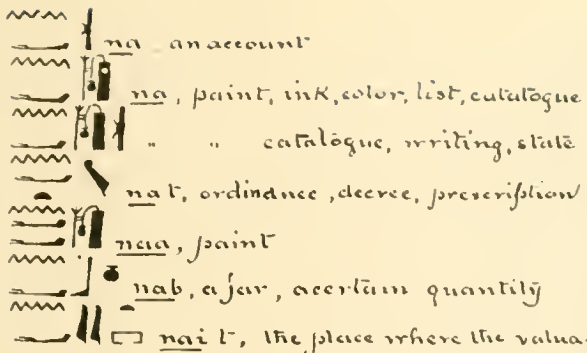 na an account
na, paint, ink, color, list, catalogue
" " catalogue, writing, state
nat, ordinance, decree, prescription
naa, paint
nab, a jar, a certain quantity
nait, the place where the valua